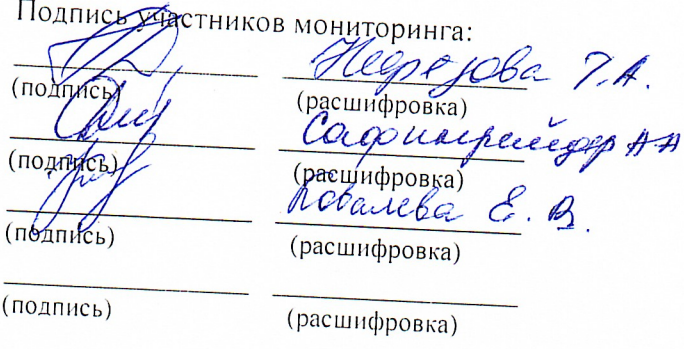 Подпись участников мониторинга:
Т.А.
(подпись) (расшифровка)
АА
(подпись) (расшифровка)
Ковалева Е. В.
(подпись) (расшифровка)
(подпись) (расшифровка)